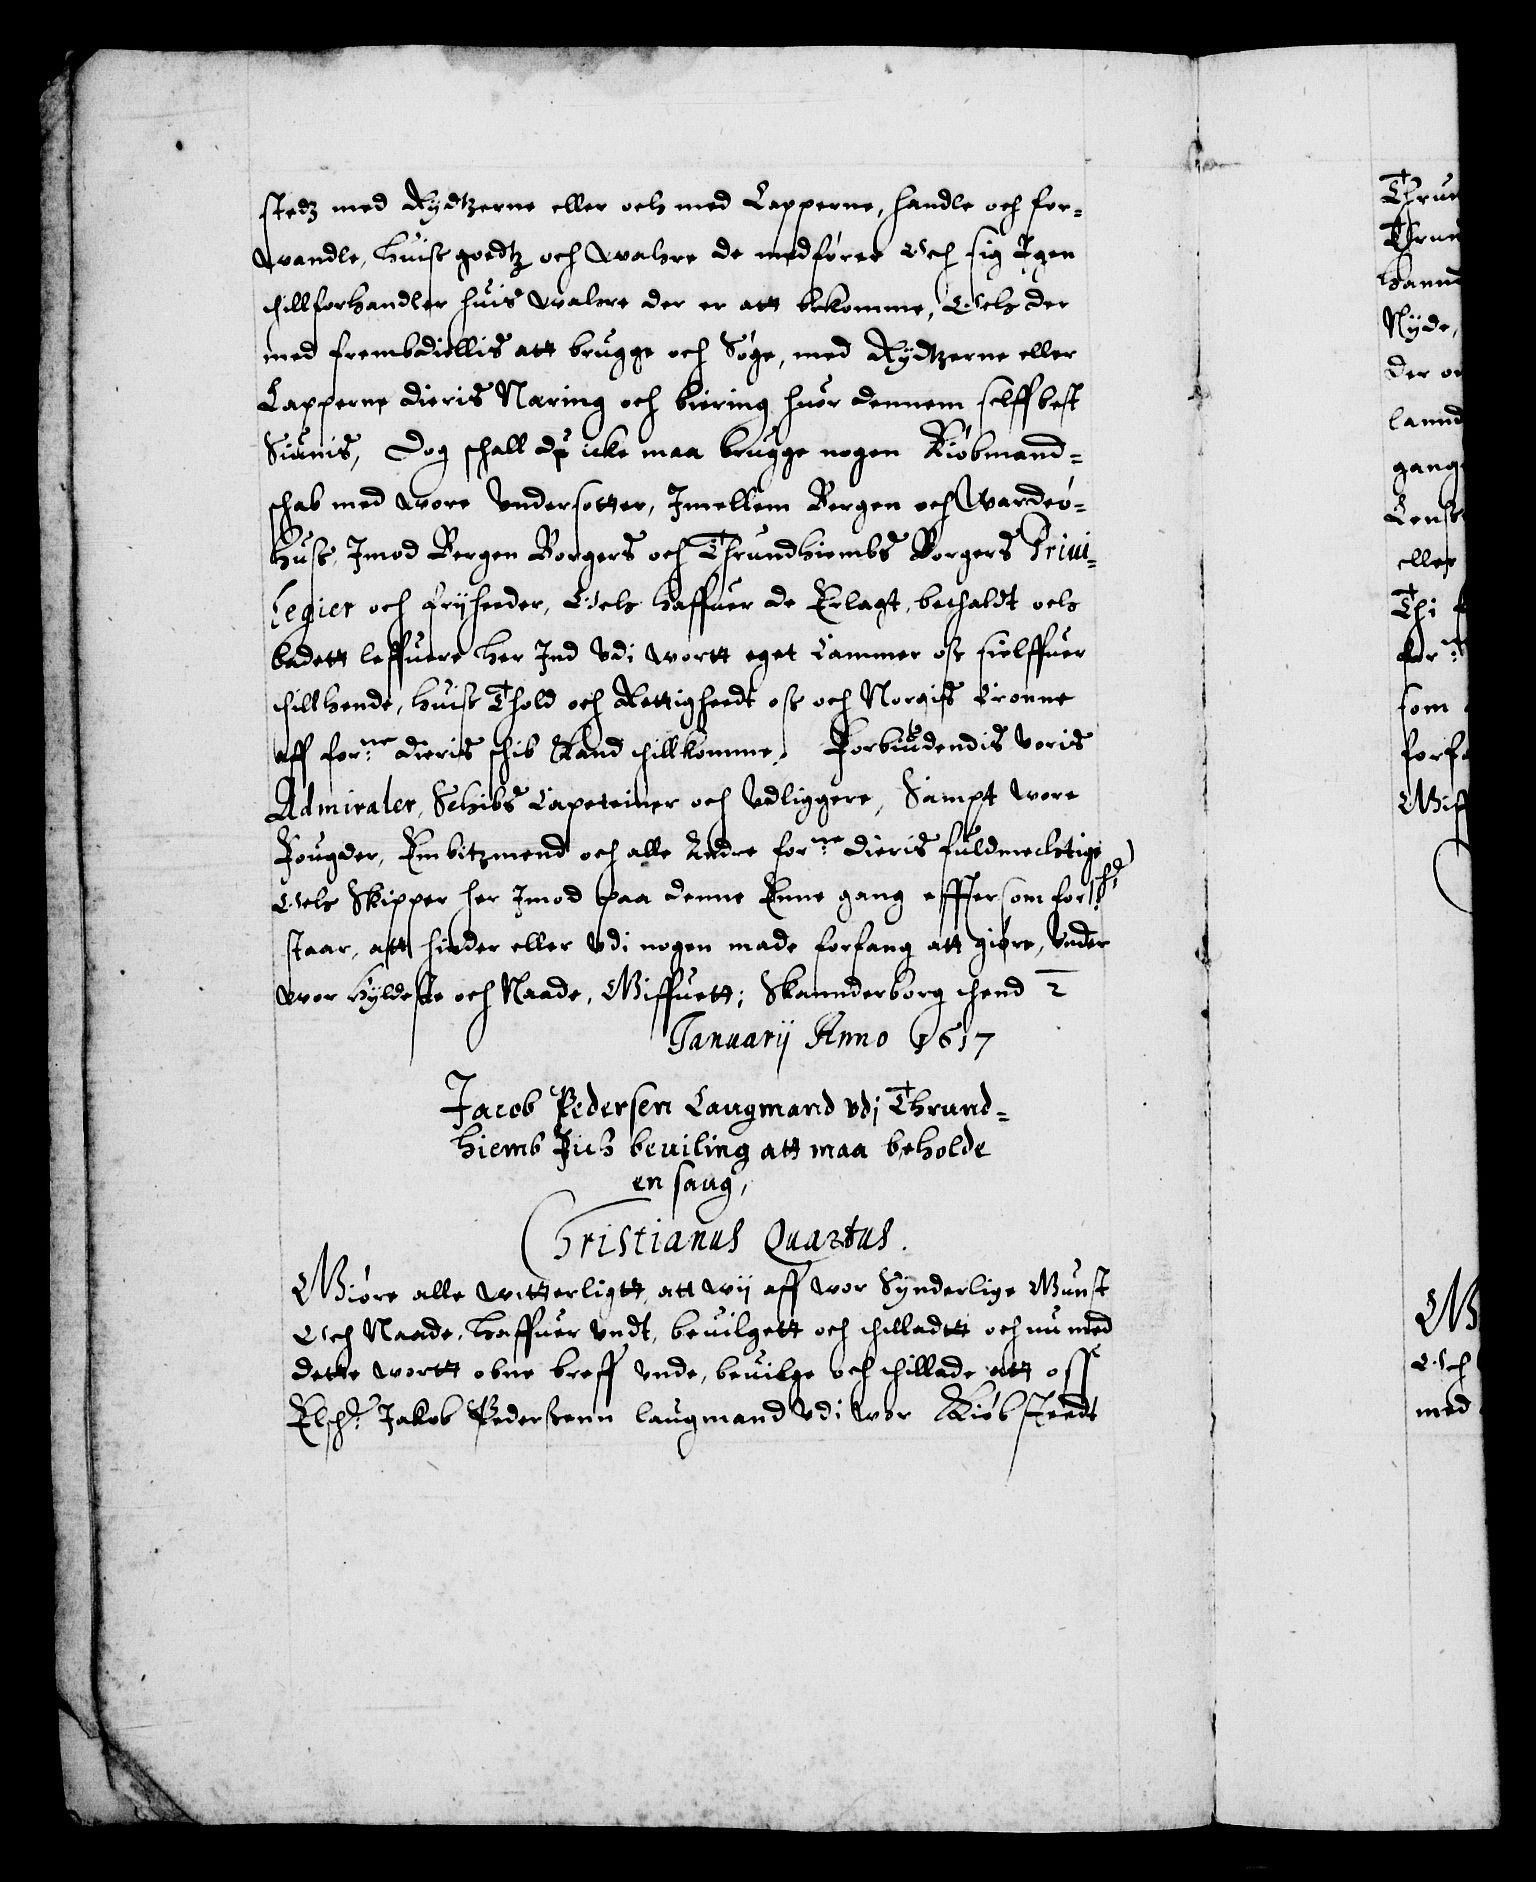 stedz med Rydtzerne eller och med Lapperne, handle och for-
wandle, huise goedtz och wahre de medfører Och sig Igen
thillforhandler huis wahre der er att bekomme, Och der
med frembdiellis att brugge och Søge, med Rydtzerne eller
Lapperne dieris Næring och biering huor dennem selff best
Siunis, Dog schall de icke maa brugge nogen Kiøbmand-
schab med wore Undersotter, Imellem Bergen och Wardeø-
huse, Imod Bergen Borgers och Thrundhiembs Borgers Priui-
legier och Fryheeder, Och haffuer de Erlagt, bethaldt och
ladett leffuere her Ind Udi wortt eget Cammer oss sielffuer
thillhende, huise Thold och Rettigheedt oss och Norgis Cronne
aff forne: dieris schib Kand thillkomme, Forbiudendis Voris
Admiraler, Schibs Capeteiner och Udliggere, Sampt wore
Fougder, Embitzmend och alle Andre forne: dieris fuldmechtige
Och Skipper her Imod paa denne Enne gang effter som forschr:
staar, att hinder eller Udi nogen made forfang att giøre, Under
wor hyldeste och Naade, Giffuett; Skannderborg thend 2
Januarij Anno 1617
Jacob Pedersen Laugmand Udj Thrund-
hiemb Fich beuiling att maa beholde
en saug,
Christianus Quartus.
Giøre alle witterligtt, att wij aff wor Synderlige Gunst
Och Naade, haffuer Undt, beuilgett och thilladtt och nu med
dette wortt obne breff Unde, beuilge och thillade att oss
Elsch: Jakob Pederssenn laugmand Udi wor Kiøbsteedt